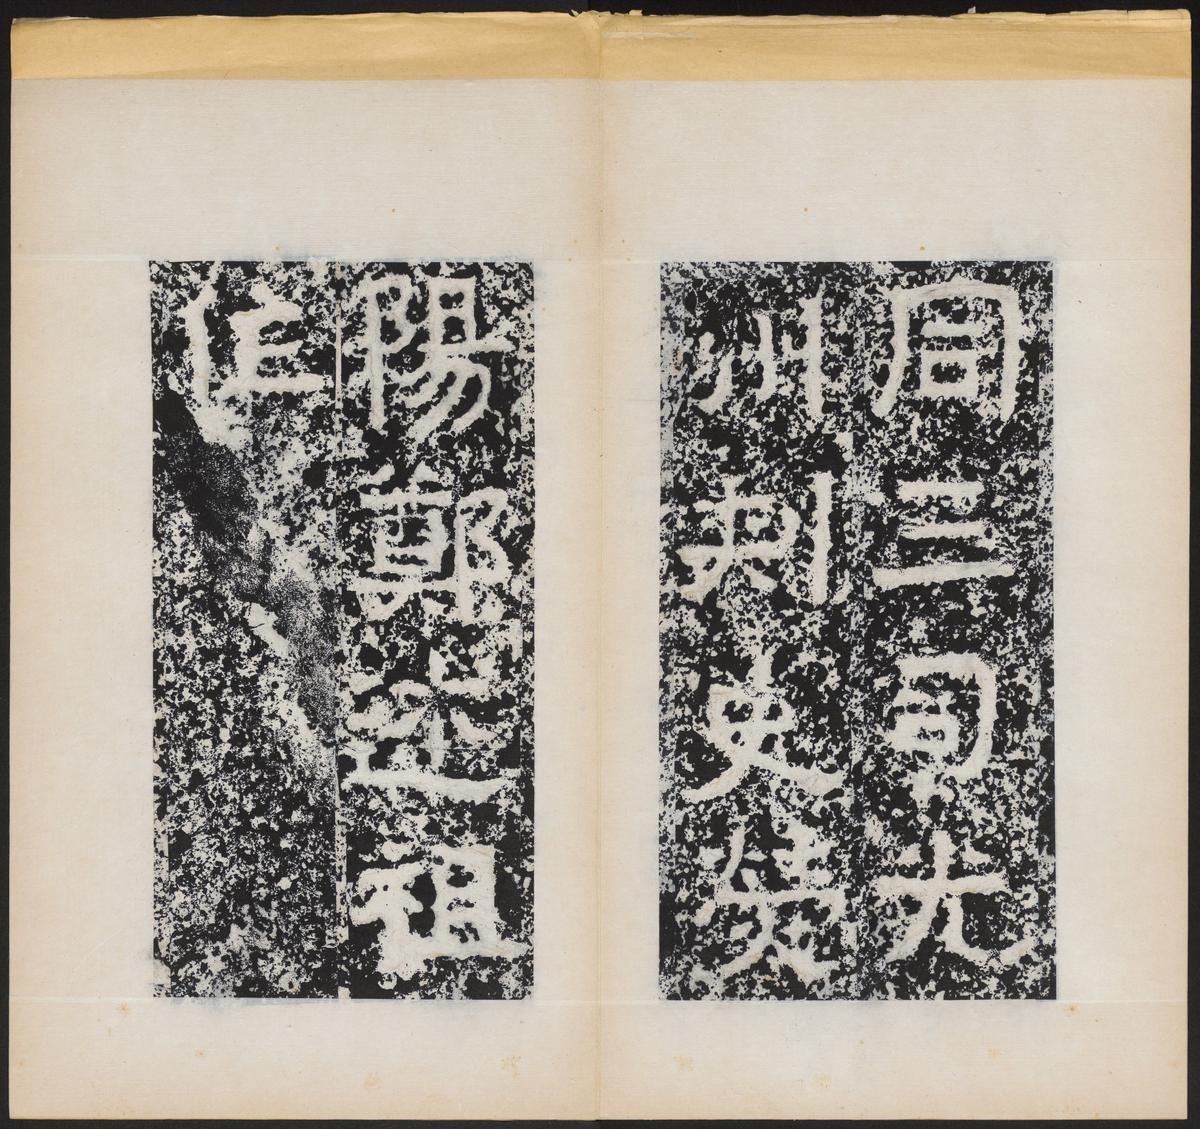 同三司光
州刺史滎
陽鄭述祖
作